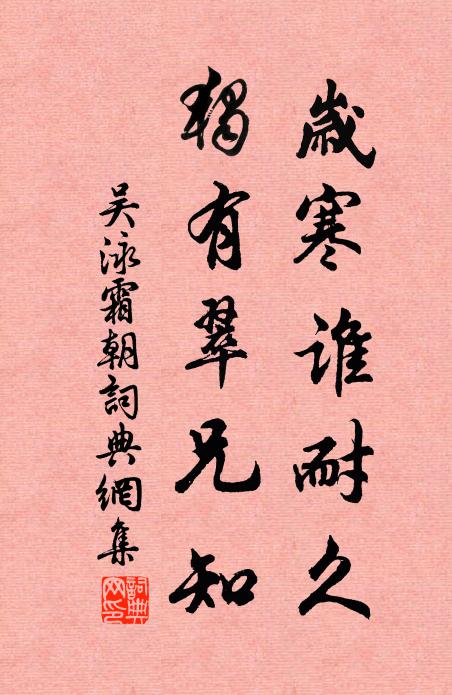 歲寒誰耐久
獨有翠兄知
吴泳霜朝詞典網集
詞典
网印